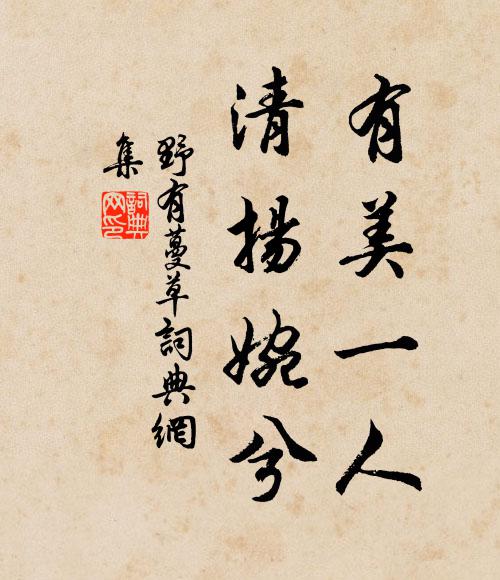 有美一人
清揚婉兮
野有蔓草詞典網
集
詞典
网印